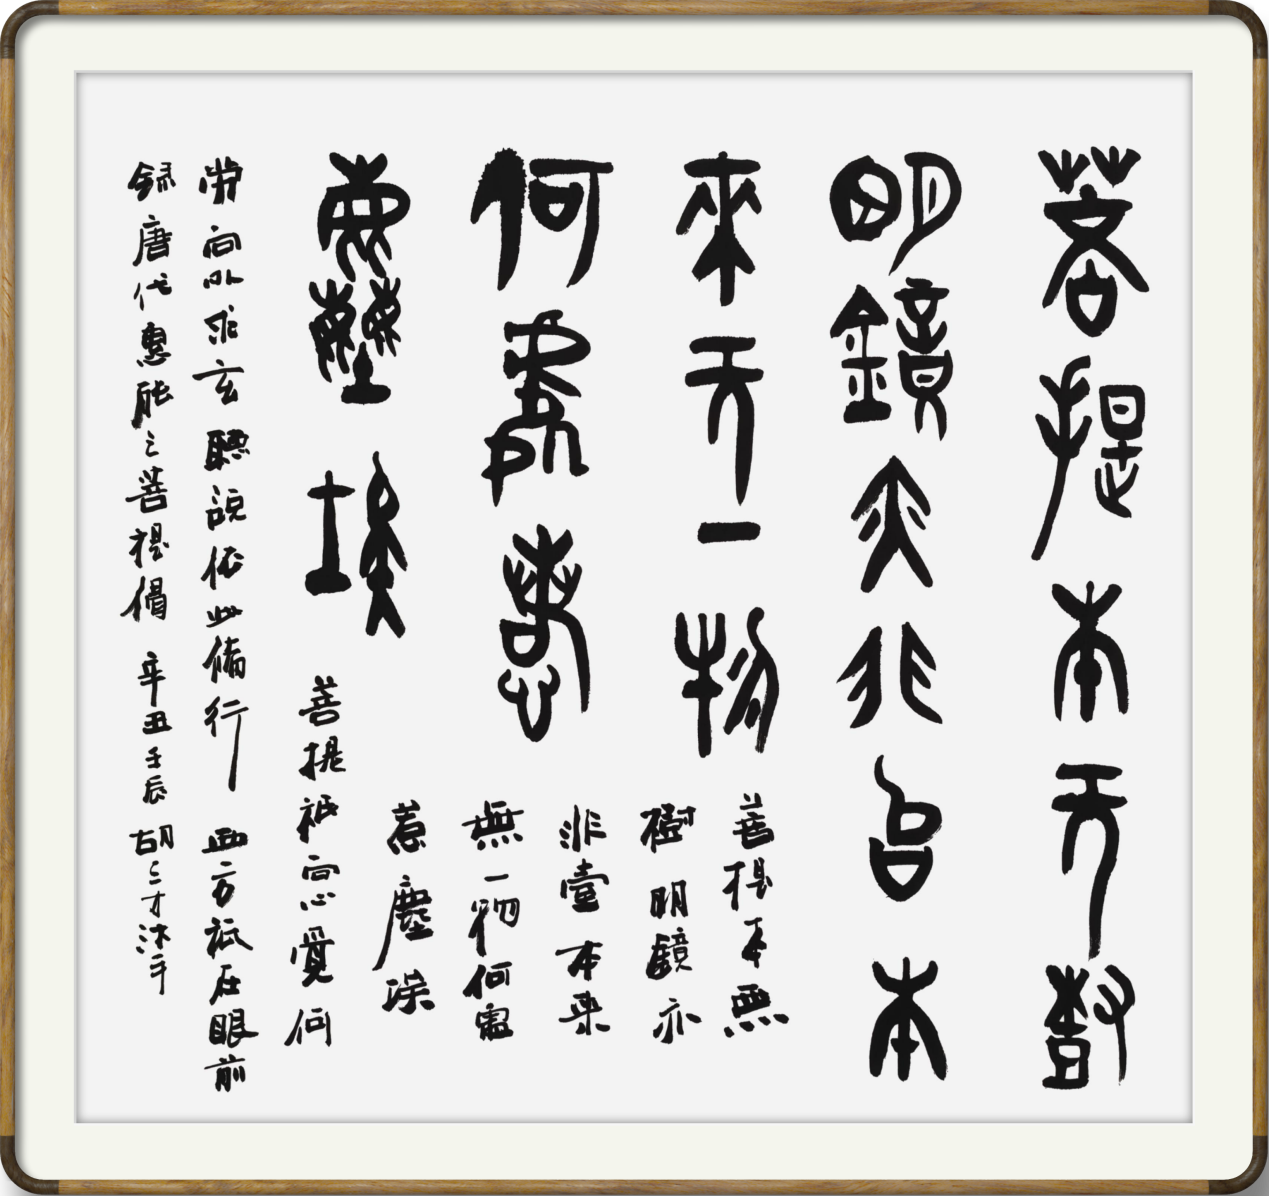 菩提本无樹
明鏡亦非台本
來无一物
何處惹
塵埃
菩提本無
樹明鏡亦
非臺本来
無一物何處
惹塵埃
菩提祇向心覓何
勞向外求玄聽説依此脩行西方祇在眼前
録唐代惠能之菩提偈辛丑壬辰胡三才沐手